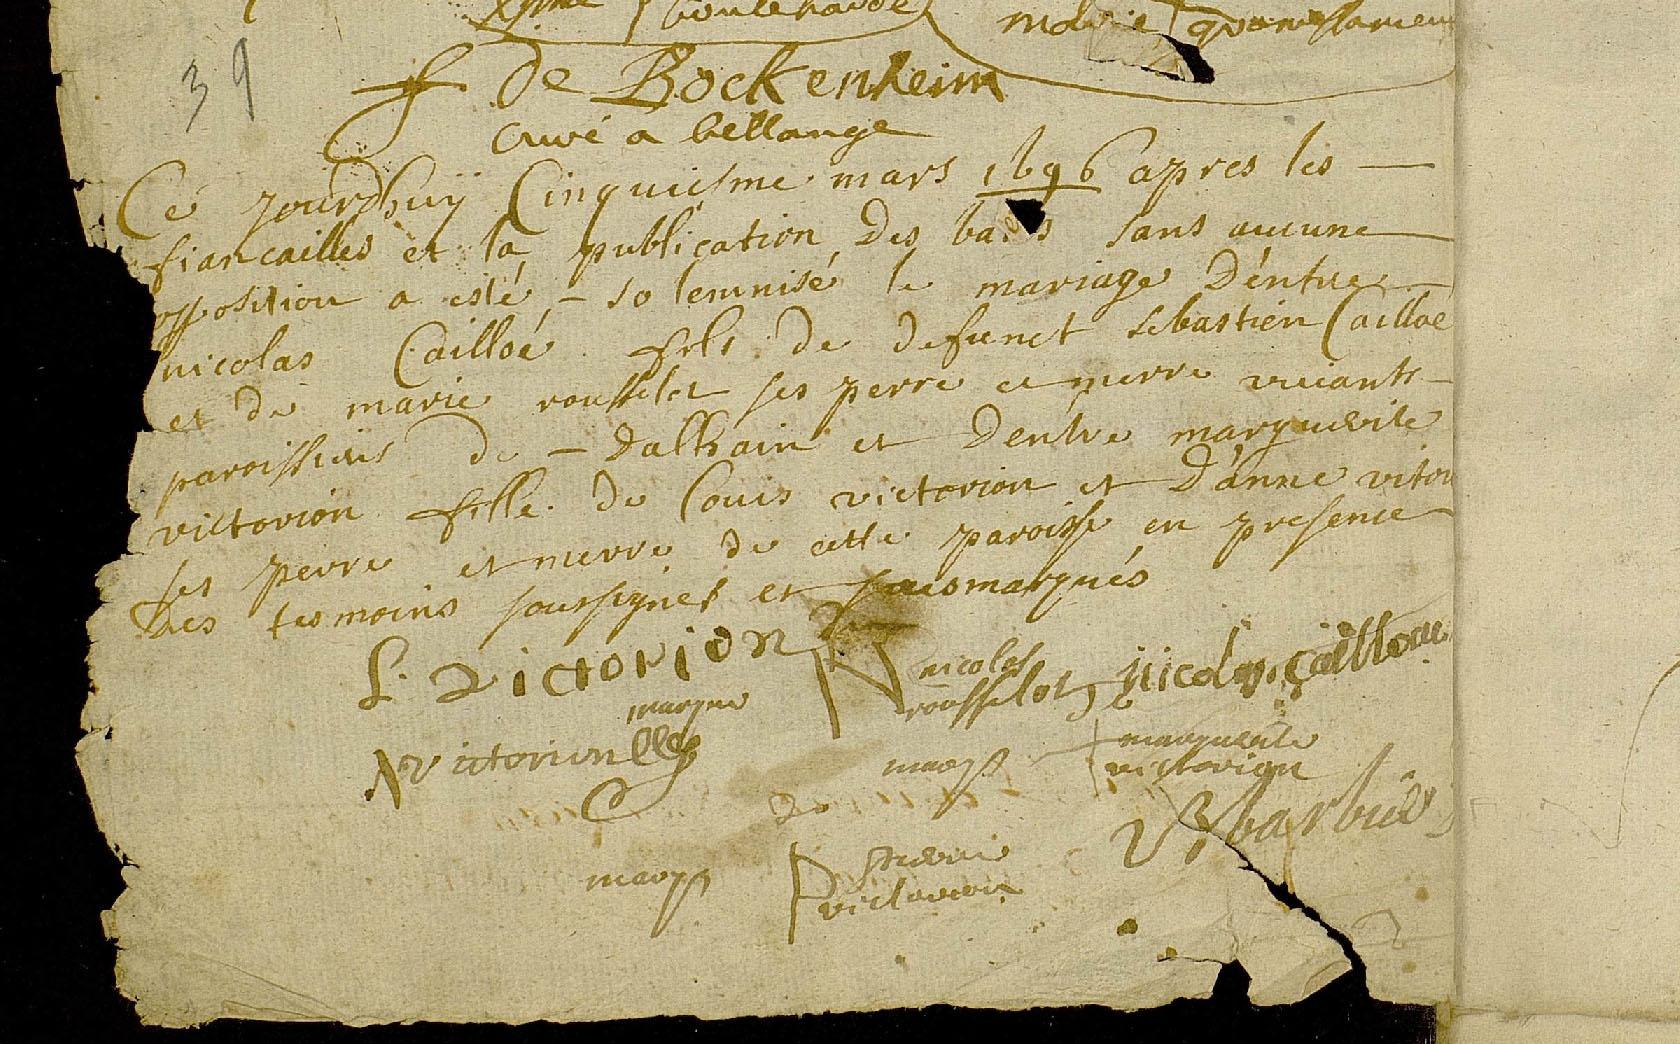 39
f De Bockenheim
curé a bellange
Ce jourdhuÿ Cinquiesme mars 1696 apres les
fiancailles et la publication Des bans sans aucune
opposition a esté solemnisé le mariage D'entre
nicolas Cailloé fils de defunct sebastien Cailloé
et de marie rousselot ses perre et merre viuants
paroissiens de Dalhain et D'entre marguerite
victorion fille de Louis victorion et D'anne viton
ses perre et merre de cette paroisse en presence
Des tesmoins soussignes et sousmarqués
L. victorion nicolas rousselot nicolas cailloue
marque
victorion marque marguerite victorion
barbier
marque
victorion